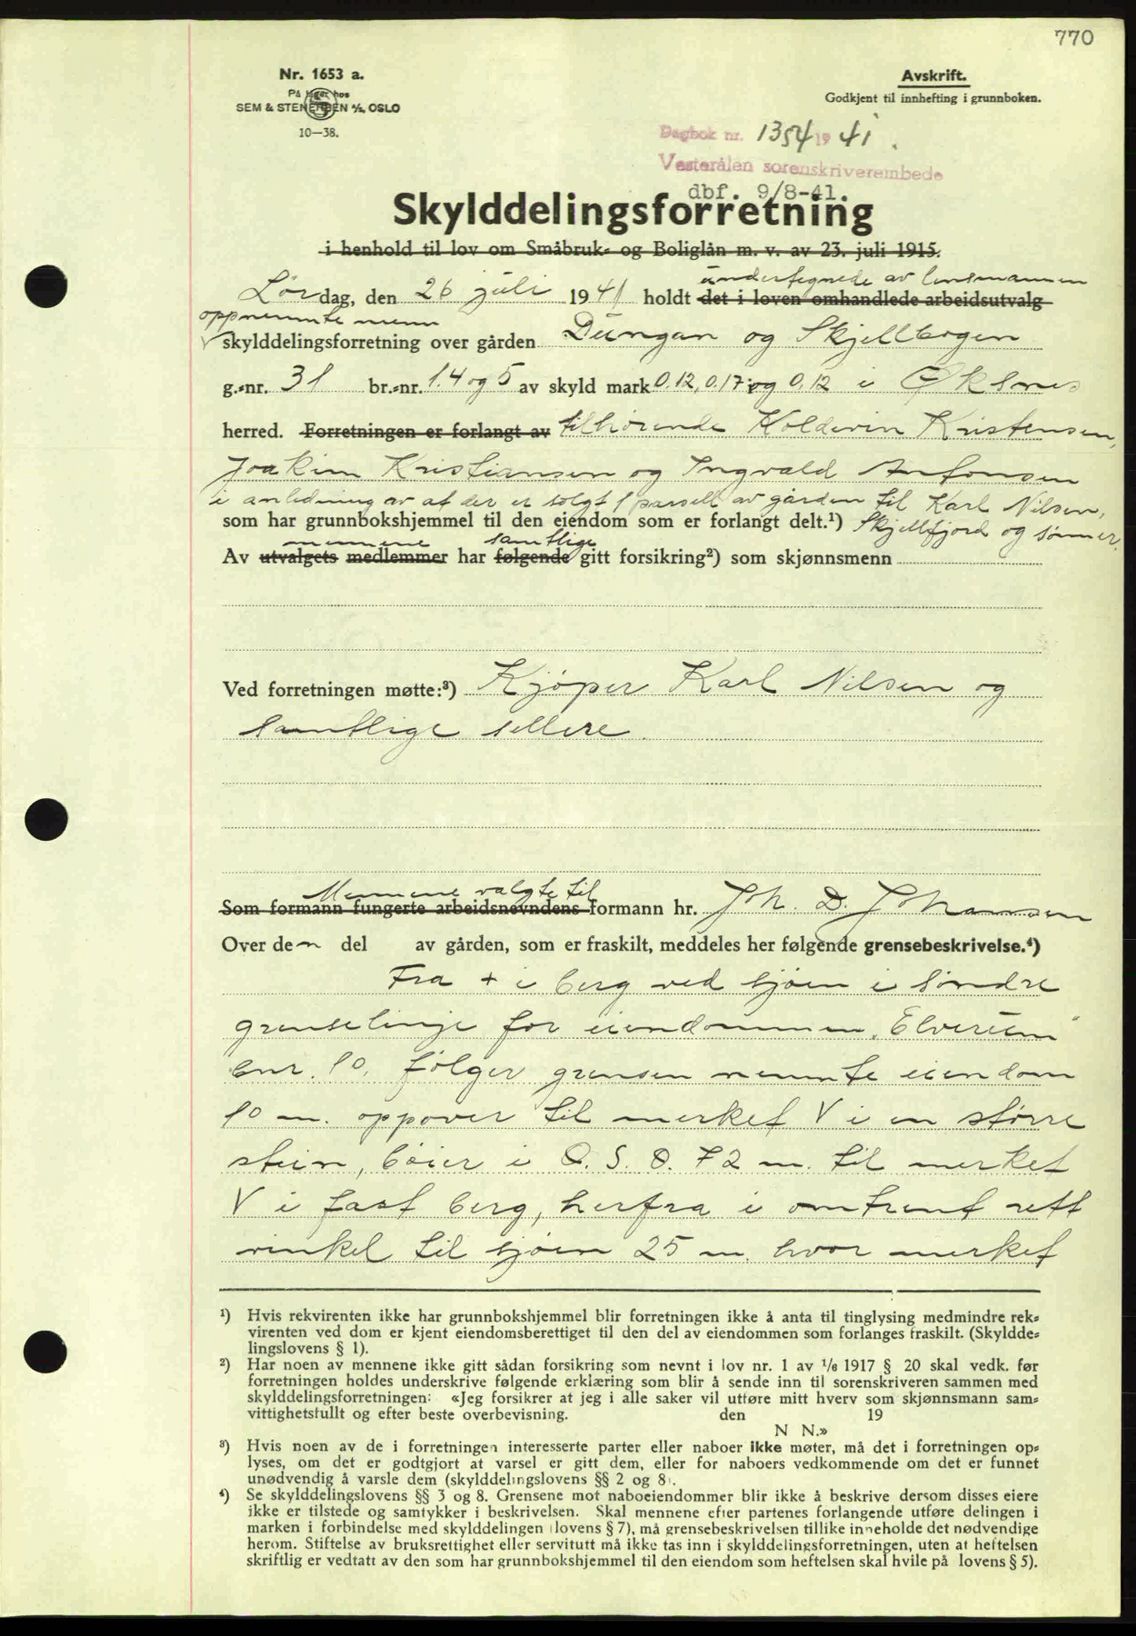 770
Nr. 1653 a.
På lager hos
SEM & STENERSEN A/S, OSLO
10—38.
Avskrift.
Godkjent til innhefting i grunnboken.
Dagbok nr. 1354 1941.
Vesterålen sorenskriverembede
dbf. 9/8-41.
Skylddelingsforretning
i henhold til lov om Småbruk- og Boliglån m. v. av 23. juli 1915.
undertegnede av lensmannen
Lørdag, den 26 juli 1941 holdt det i loven omhandlede arbeidsutvalg
oppnevnte menn
skylddelingsforretning over gården Dungan og Skjellbogen
g.-nr. 31 br.-nr. 1.4 og 5 av skyld mark 0.12, 0.17 og 0.12 i Øksnes
herred. Forretningen er forlangt av tilhørende Kolderin Kristensen,
Joakim Kristiansen og Ingvald Anfonsen
i anledning av at der er solgt 1 parsell av gården til Karl Nilsen,
som har grunnbokshjemmel til den eiendom som er forlangt delt.¹) Skjellfjord og sønner.
mennene samtlige
Av utvalgets medlemmer har følgende gitt forsikring²) som skjønnsmenn
Ved forretningen møtte:³) Kjøper Karl Nilsen og
samtlige sellere.
Mennene valgte til
Som formann fungerte arbeidsnevndens formann hr. Joh. D. Johansen
Over den del av gården, som er fraskilt, meddeles her følgende grensebeskrivelse.⁴)
Fra + i berg ved sjøen i søndre
grenselinje for eiendommen "Elvereim"
bnr. 10. følger grensen nevnte eiendom
10 m. oppover til merket V i en større
stein, bøier i O. S. O. 72 m. til merket
V i fast berg, herfra i omtrent rett
vinkel til sjøen 25 m. hvor merket
¹) Hvis rekvirenten ikke har grunnbokshjemmel blir forretningen ikke å anta til tinglysing medmindre rek-
virenten ved dom er kjent eiendomsberettiget til den del av eiendommen som forlanges fraskilt. (Skyldde-
lingslovens § 1).
²) Har noen av mennene ikke gitt sådan forsikring som nevnt i lov nr. 1 av 1/6 1917 § 20 skal vedk. før
forretningen holdes underskrive følgende erklæring som blir å sende inn til sorenskriveren sammen med
skylddelingsforretningen: «Jeg forsikrer at jeg i alle saker vil utføre mitt hverv som skjønnsmann sam-
vittighetsfullt og efter beste overbevisning. den 19
N N.»
³) Hvis noen av de i forretningen interesserte parter eller naboer ikke møter, må det i forretningen op-
lyses, om det er godtgjort at varsel er gitt dem, eller for naboers vedkommende om det er funnet
unødvendig å varsle dem (skylddelingslovens §§ 2 og 8).
⁴) Se skylddelingslovens §§ 3 og 8. Grensene mot naboeiendommer blir ikke å beskrive dersom disses eiere
ikke er tilstede og samtykker i beskrivelsen. Skal mennene efter partenes forlangende utføre delingen i
marken i forbindelse med skylddelingen (lovens § 7), må grensebeskrivelsen tillike inneholde det nødvendige
herom. Stiftelse av bruksrettighet eller servitutt må ikke tas inn i skylddelingsforretningen, uten at heftelsen
skriftlig er vedtatt av den som har grunnbokshjemmel til den eiendom som heftelsen skal hvile på (lovens § 5).